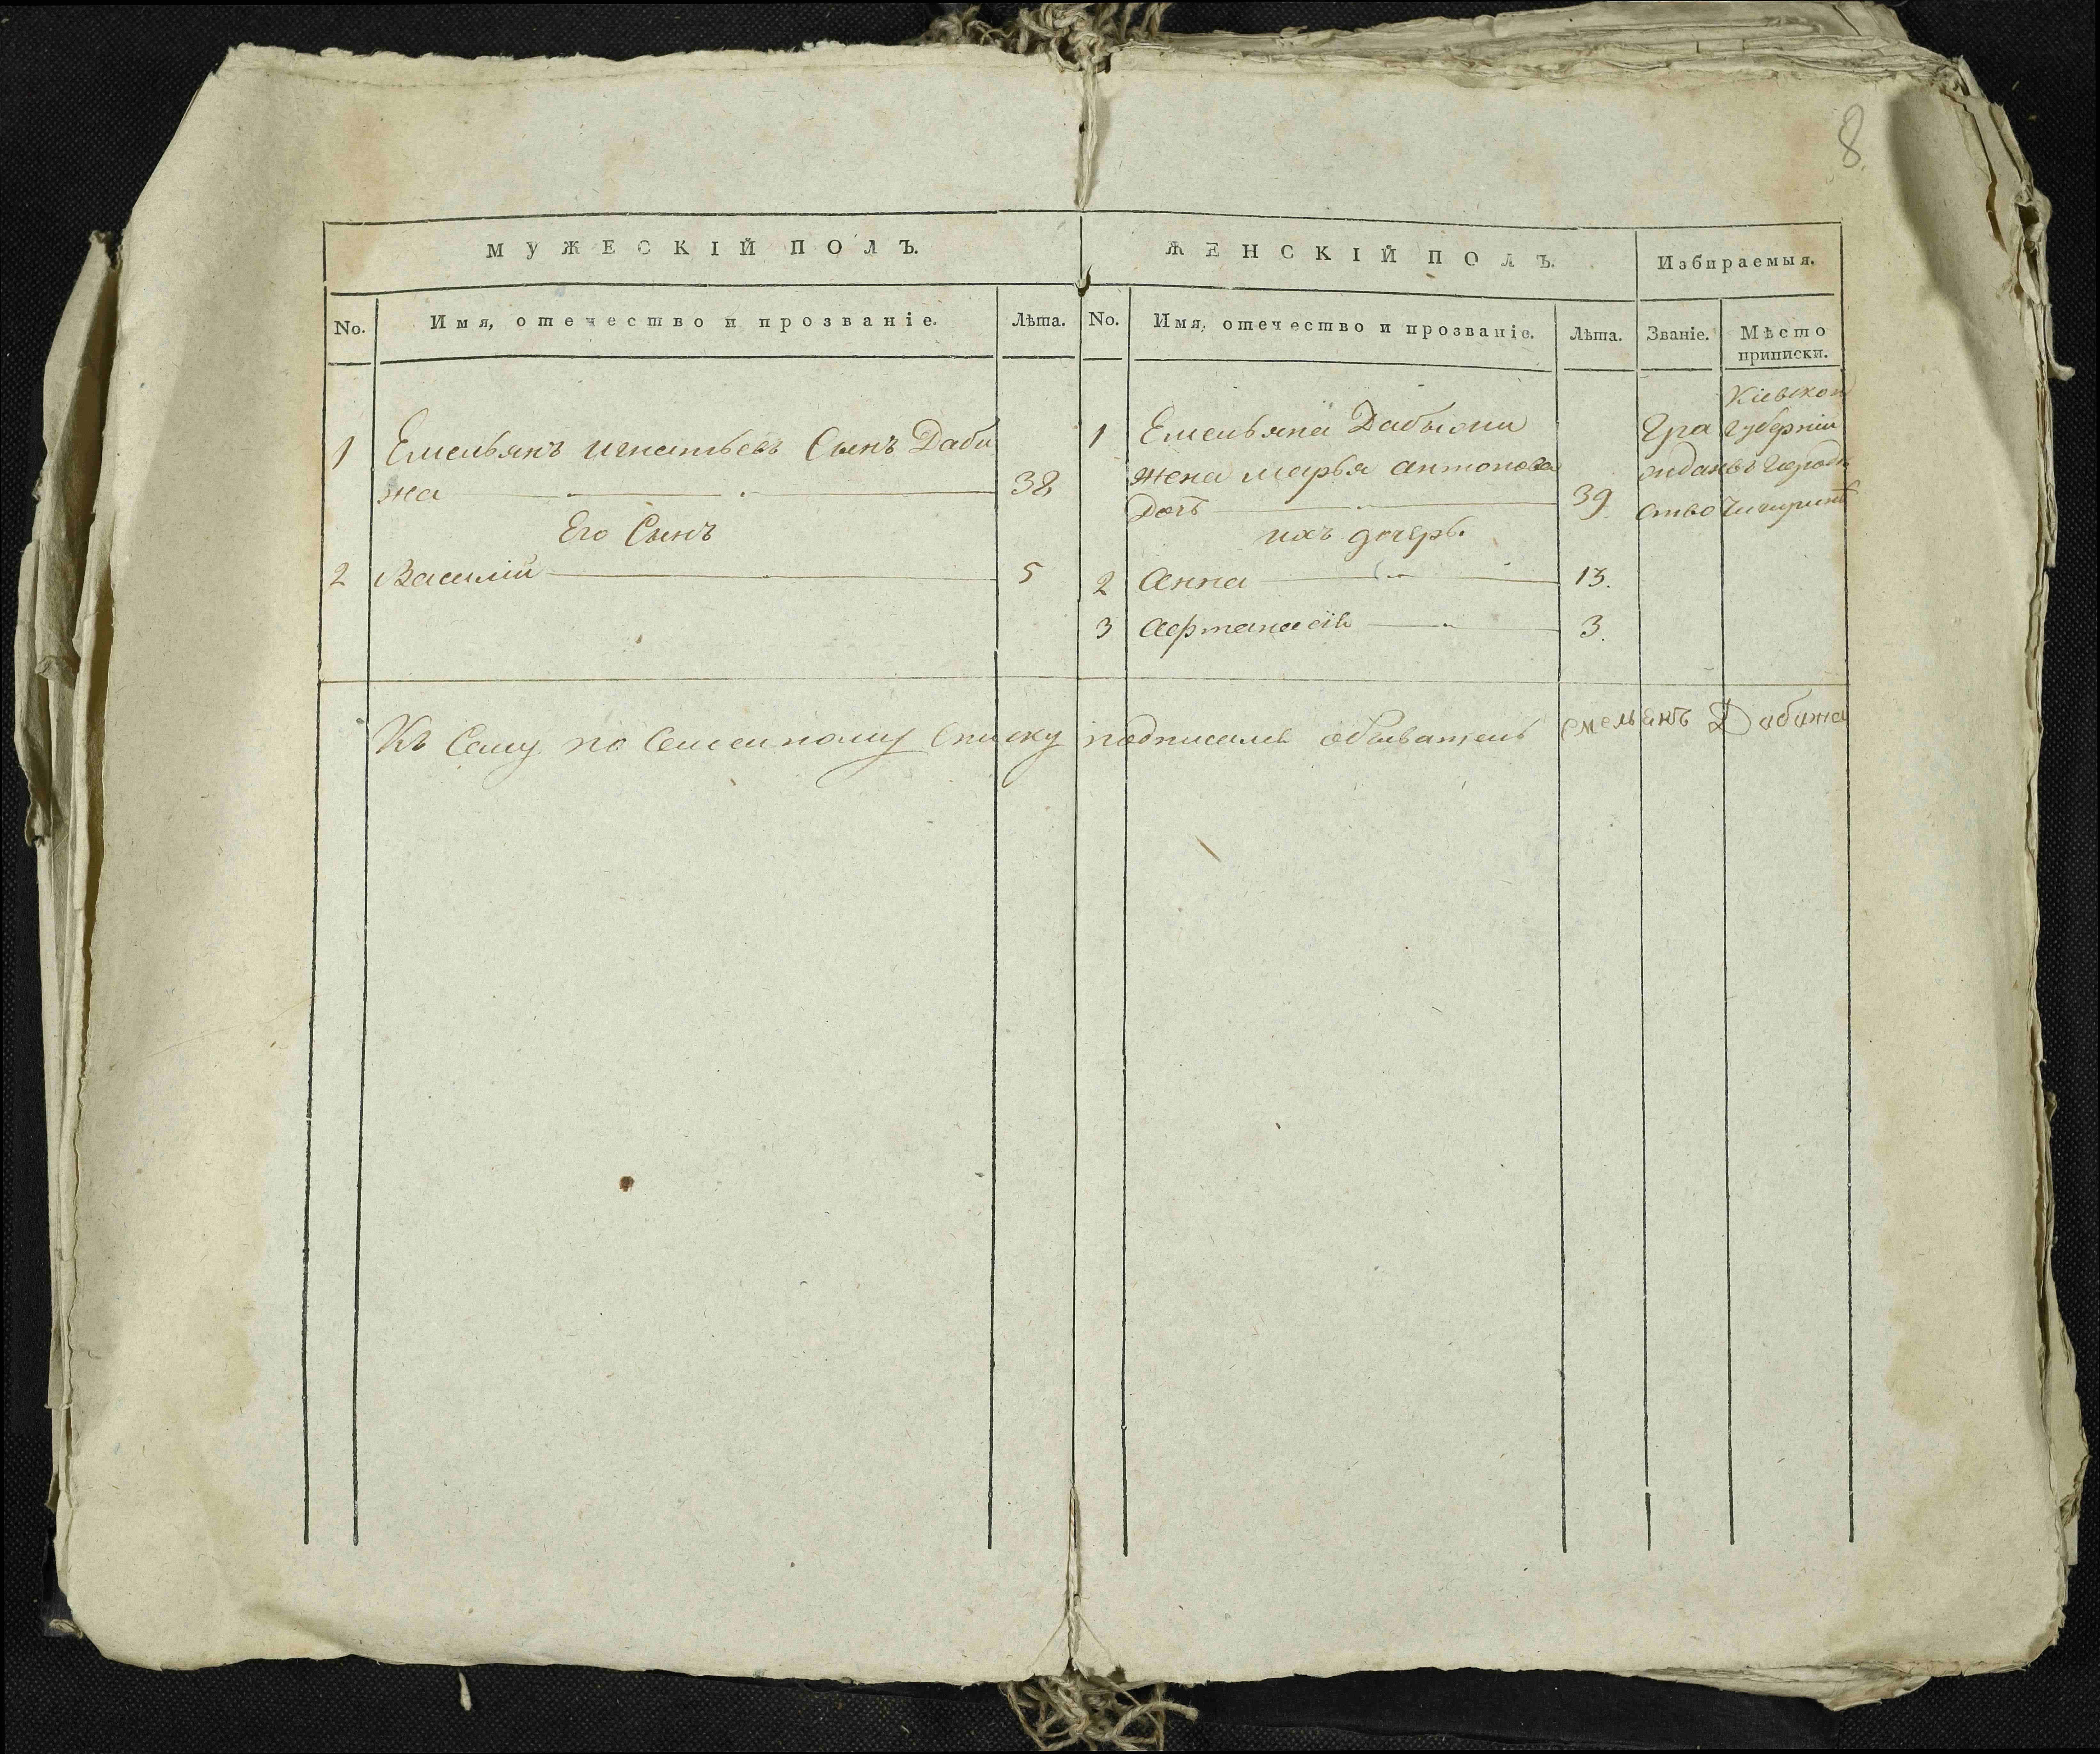 8.
МУЖЕСКІЙ ПОЛЪ.
ЖЕНСКІЙ ПОЛЪ.
Избираемыя.
No.
Имя, отечество и прозваніе.
Лѣта.
No.
Имя, отечество и прозваніе.
Лѣта.
Званіе.
Мѣсто
приписки.
1 Емельянъ игнатьевъ Сынъ Даби
жа 38
Его Сынъ
2 Василій 5
1 Емельяна Дабыжи
жена марья антонова
Дочь 39
ихъ дочерь.
2 Анна 13.
3 Афтанасія 3.
Гра
ждан
ство
Кіевской
Губерніи
въ Городѣ
Чигиринѣ
Къ Сему по Семейному Списку подписался обыватель емельянъ Дабижа